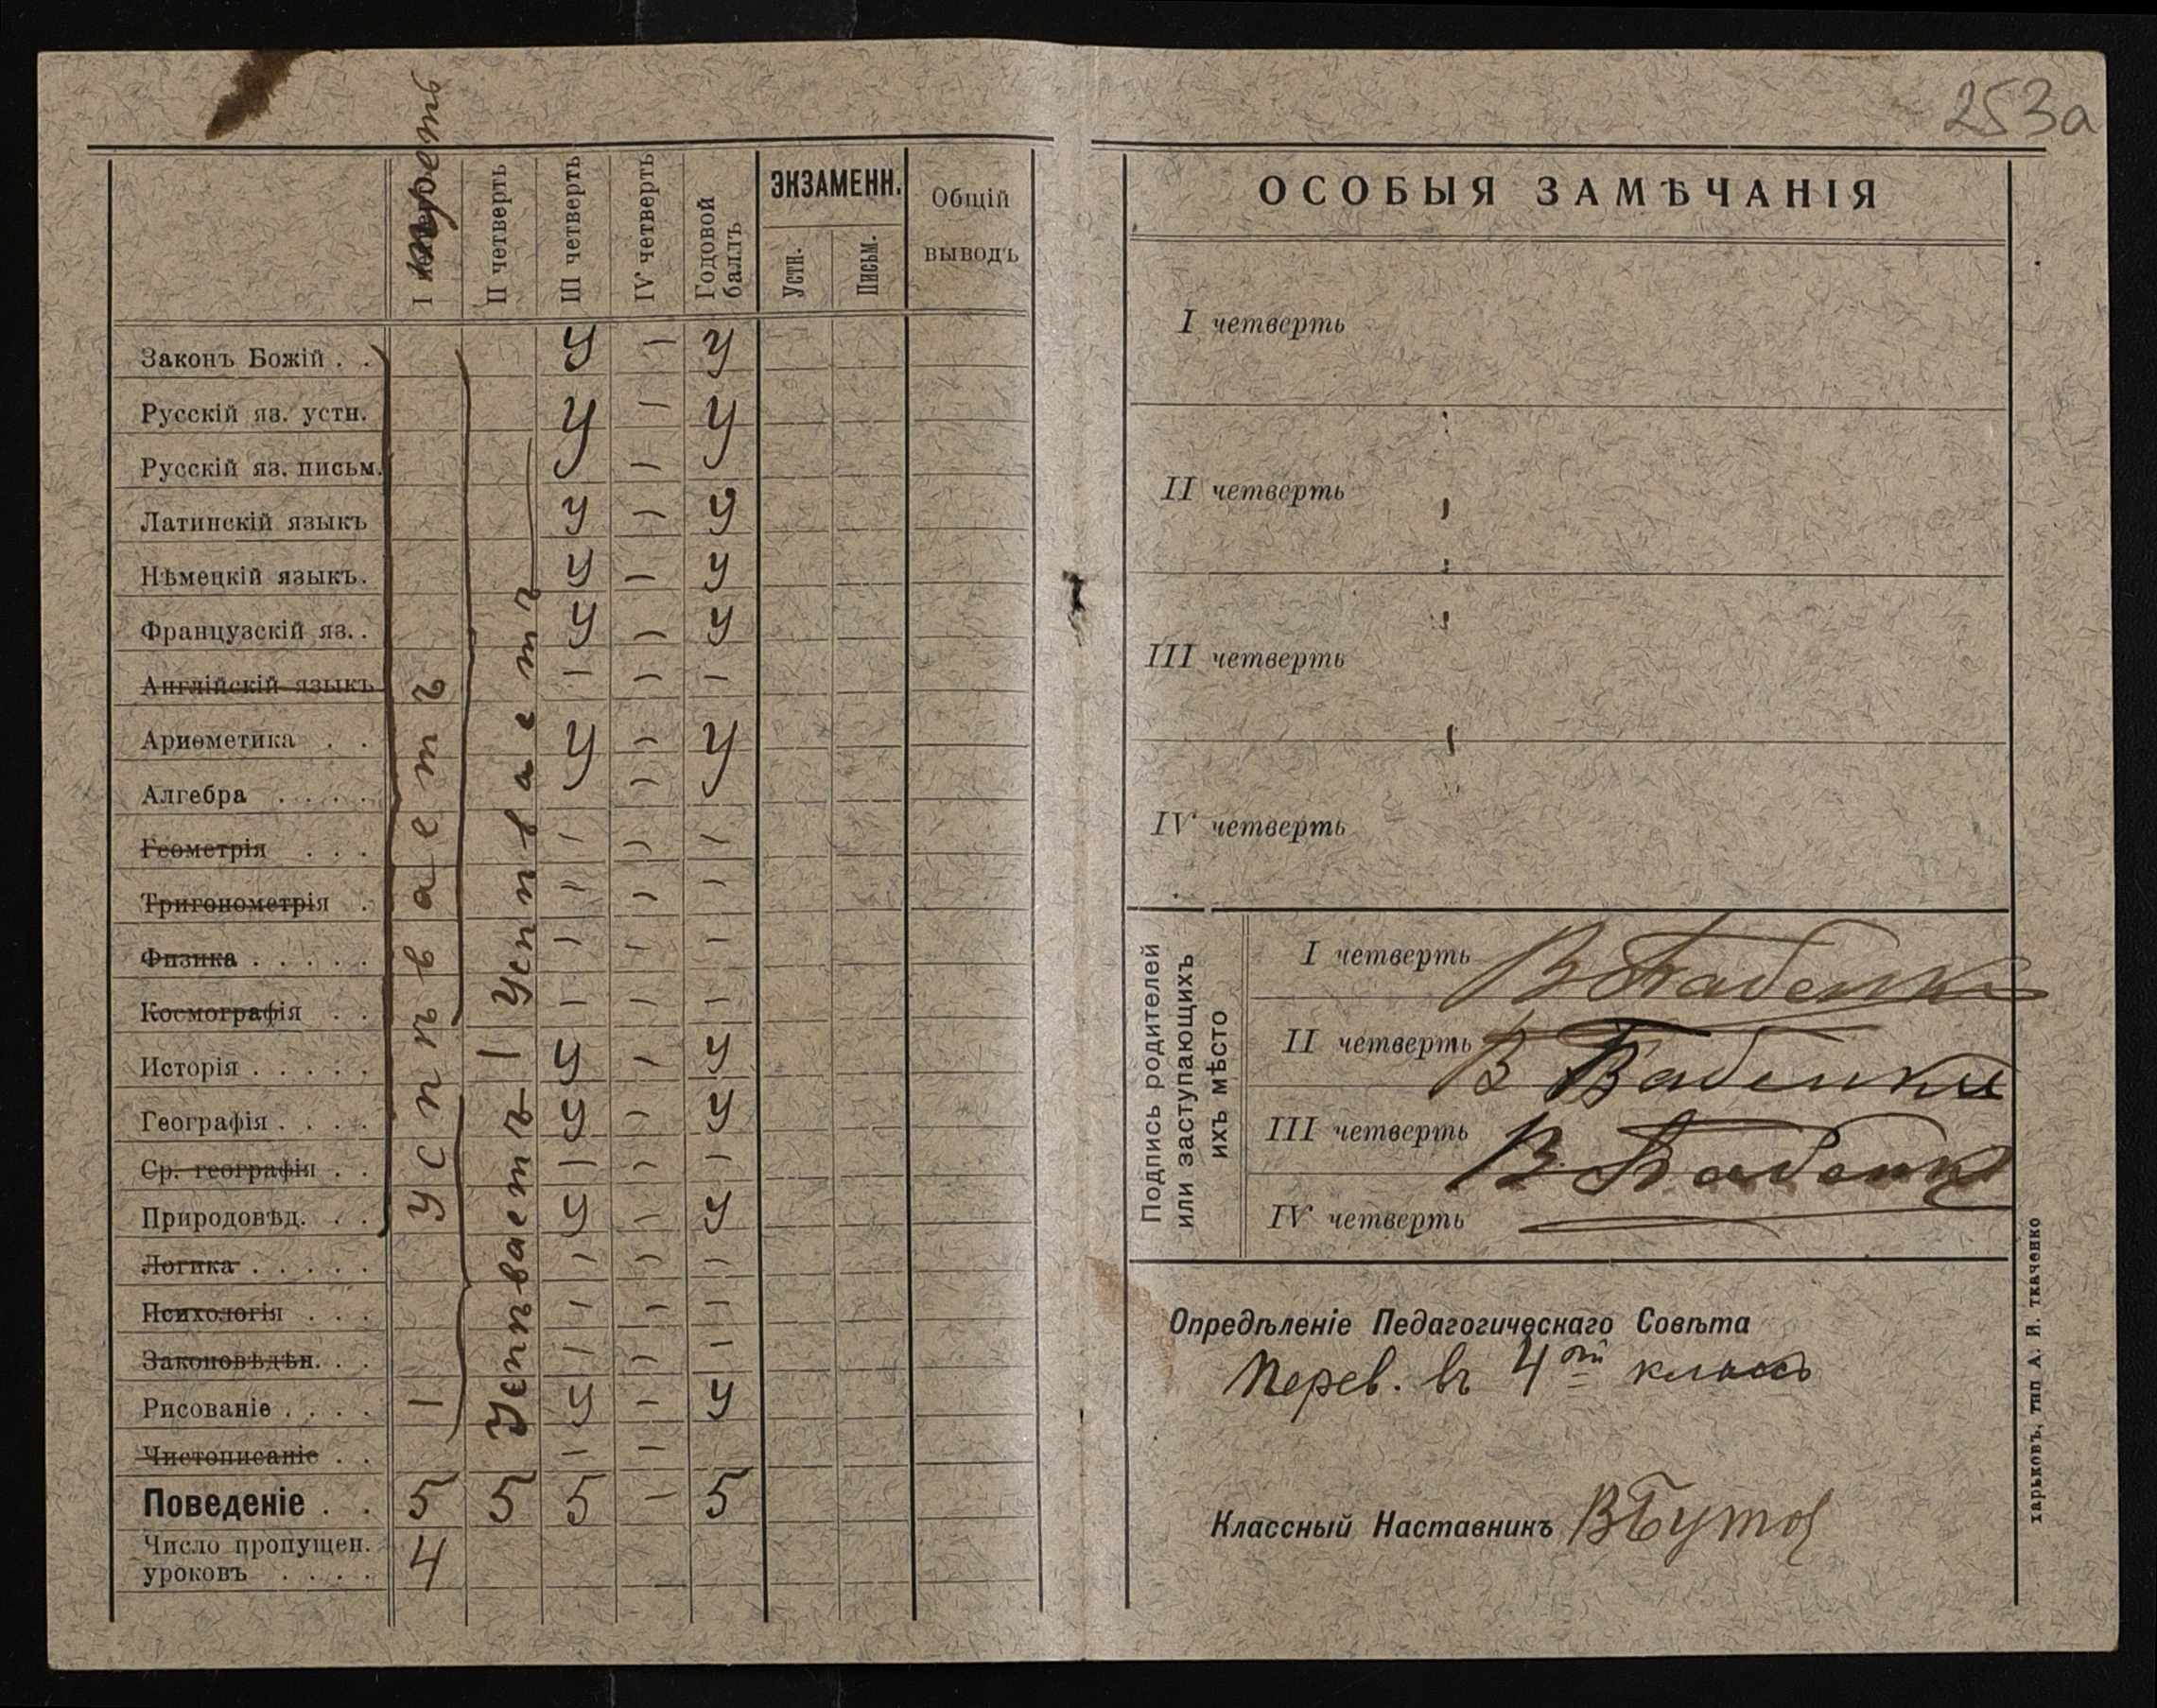 253а
I треть
II четверть
III четверть
IV четверть
Годовой баллъ
ЭКЗАМЕНН.
Устн.
Письм.
Общій
выводъ
Законъ Божій . . У – У
Русскій яз. устн. У – У
Русскій яз. письм. –
Латинскій языкъ У – У
Нѣмецкій языкъ. У – У
Французскій яз. . У – У
Англійскій языкъ – – –
Ариѳметика . . У – У
Алгебра . . . . –
Геометрія . . . – – –
Тригонометрія . – – –
Физика . . . . . – – –
Космографія . . – – –
Исторія . . . . . – У – У
Географія . . . . У – У
Ср. географія . . – – –
Природовѣд. . . У – У
Логика . . . . . – – –
Психологія . . . – – –
Законовѣдѣн. . . – – –
Рисованіе . . . . – У – У
Чистописаніе . . – –
Поведеніе . . 5 5 5 – 5
Число пропущен.
уроковъ . . . . 4
Успѣваетъ
Успѣваетъ
Успѣваетъ
ОСОБЫЯ ЗАМѢЧАНІЯ
I четверть
II четверть
III четверть
IV четверть
Подпись родителей
или заступающихъ
ихъ мѣсто
I четверть В Бабенко
II четверть В Бабенко
III четверть В. Бабенко
IV четверть
Опредѣленіе Педагогическаго Совѣта
Перев. въ 4ый классъ
Классный Наставникъ
харьковъ, тип А. И. ткаченко